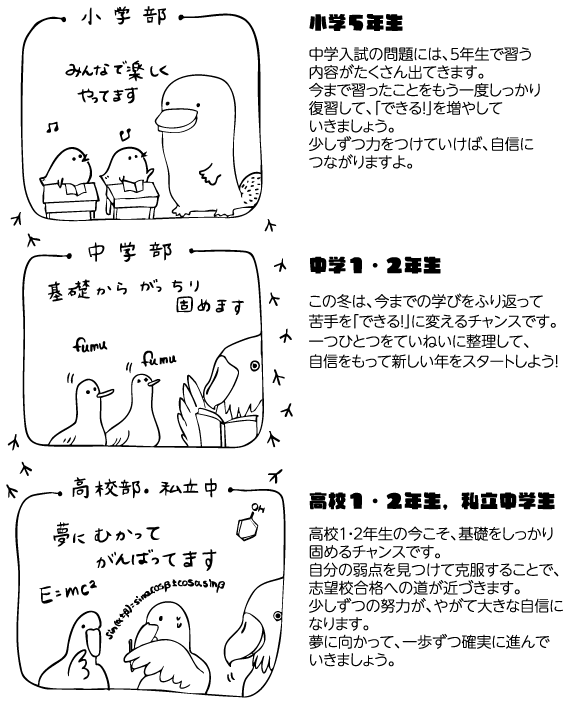 小学部
みんなで楽しく
やってます
小学5年生
中学入試の問題には、5年生で習う
内容がたくさん出てきます。
今まで習ったことをもう一度しっかり
復習して、「できる!」を増やして
いきましょう。
少しずつ力をつけていけば、自信に
つながりますよ。
中学部
基礎から がっちり
固めます
fumu
fumu
中学1・2年生
この冬は、今までの学びをふり返って
苦手を「できる!」に変えるチャンスです。
一つひとつをていねいに整理して、
自信をもって新しい年をスタートしよう!
高校部・私立中
夢に むかって
がんばってます
OH
E=mc²
sin(α±β)=sinαcosβ±cosαsinβ
高校1・2年生，私立中学生
高校1・2年生の今こそ、基礎をしっかり
固めるチャンスです。
自分の弱点を見つけて克服することで、
志望校合格への道が近づきます。
少しずつの努力が、やがて大きな自信に
なります。
夢に向かって、一歩ずつ確実に進んで
いきましょう。